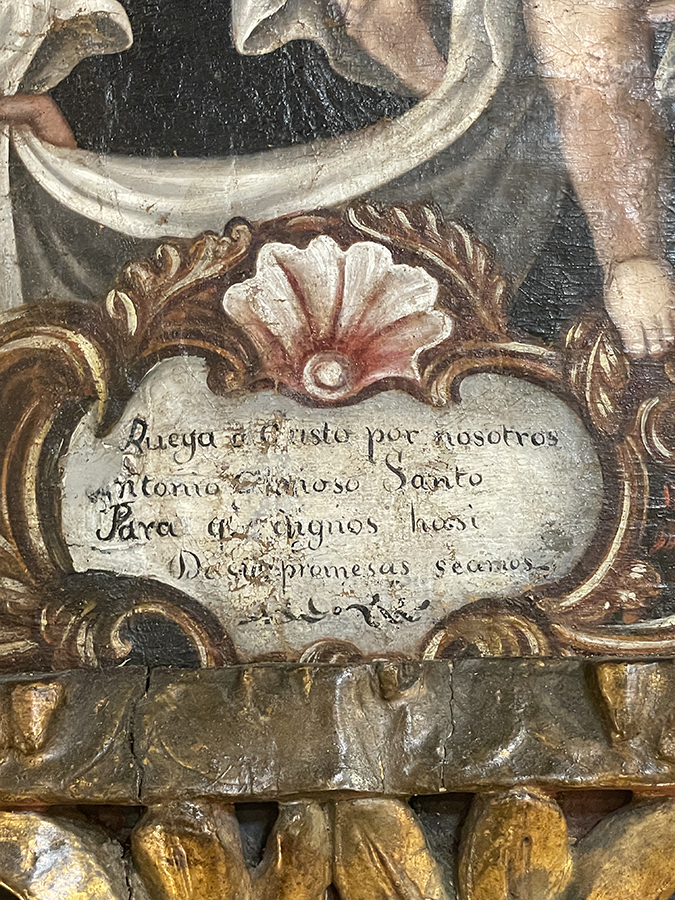 Ruega a Cristo por nosotros
Antonio Glorioso Santo
Para q. dignos hasi
De sus promesas seamos